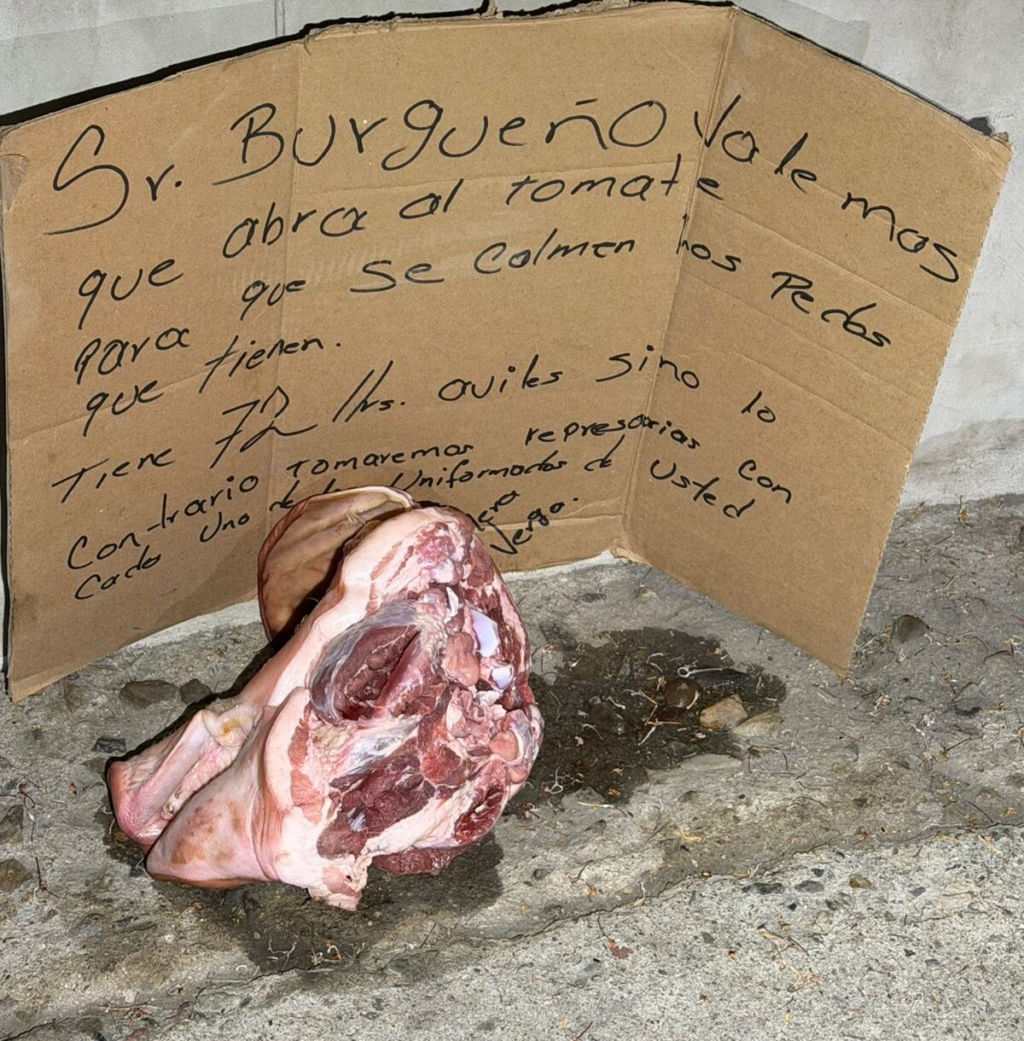 Sr. Burgueño Vale mas
que abra al tomate
para que se calmen los Pedos
que tienen.
Tiene 72 Hrs. aviles sino lo
Contrario tomaremos represarias con
cada uno de los Uniformados de Usted